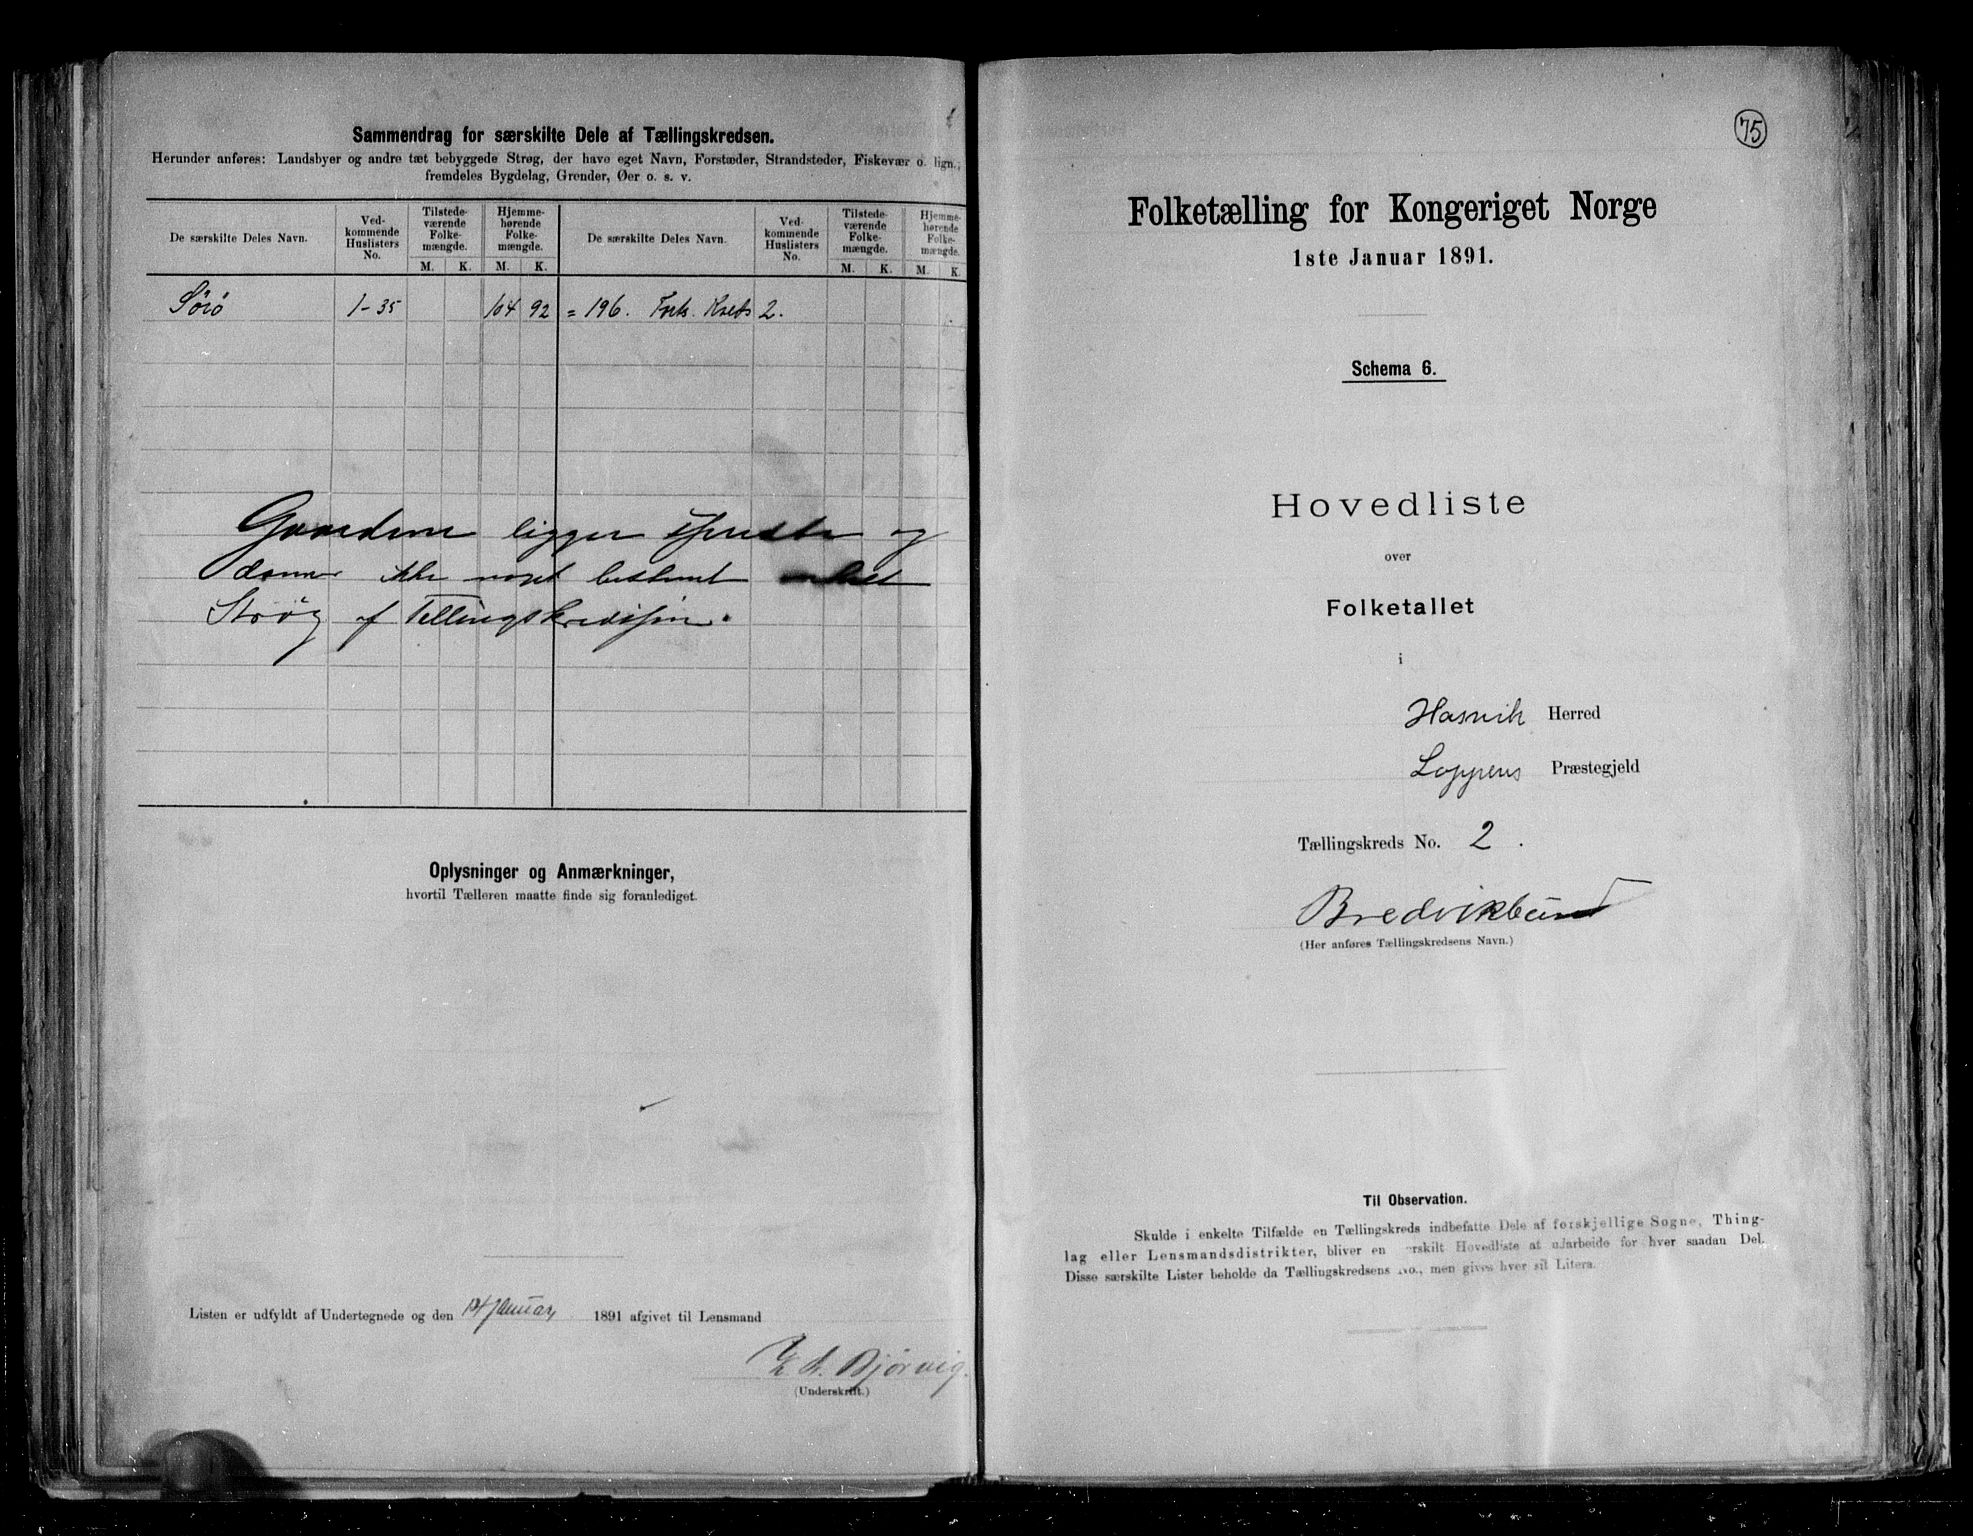 Sammendrag for særskilte Dele af Tællingskredsen.
Herunder anføres: Landsbyer og andre tæt bebyggede Strøg, der have eget Navn, Forstæder, Strandsteder, Fiskevær o. lign.;
fremdeles Bygdelag, Grender, Øer o. s. v.
De særskilte Deles Navn.
Ved-
kommende
Huslisters
No.
Tilstede-
værende
Folke-
mængde.
M. K.
Hjemme-
hørende
Folke-
mængde.
M. K.
De særskilte Deles Navn.
Ved-
kommende
Huslisters
No.
Tilstede-
værende
Folke-
mængde.
M. K.
Hjemme-
hørende
Folke-
mængde.
M. K.
Sörö 1-35 104 92 = 196. Kreds 2.
Gaardene ligger spredte og
danner ikke noget bestemt
Strög af Tellingskredsen.
Oplysninger og Anmærkninger,
hvortil Tælleren maatte finde sig foranlediget.
Listen er udfyldt af Undertegnede og den 14 Januar 1891 afgivet til Lensmand
Bjørvig.
(Underskrift.)
75
Folketælling for Kongeriget Norge
1ste Januar 1891.
Schema 6.
Hovedliste
over
Folketallet
i
Hasvik Herred
Loppens Præstegjeld
Tællingskreds No. 2.
Bredvikbund
(Her anføres Tællingskredsens Navn.)
Til Observation.
Skulde i enkelte Tilfælde en Tællingskreds indbefatte Dele af forskjellige Sogne, Thing-
lag eller Lensmandsdistrikter, bliver en særskilt Hovedliste at udarbeide for hver saadan Del.
Disse særskilte Lister beholde da Tællingskredsens No., men gives hver sit Litera.